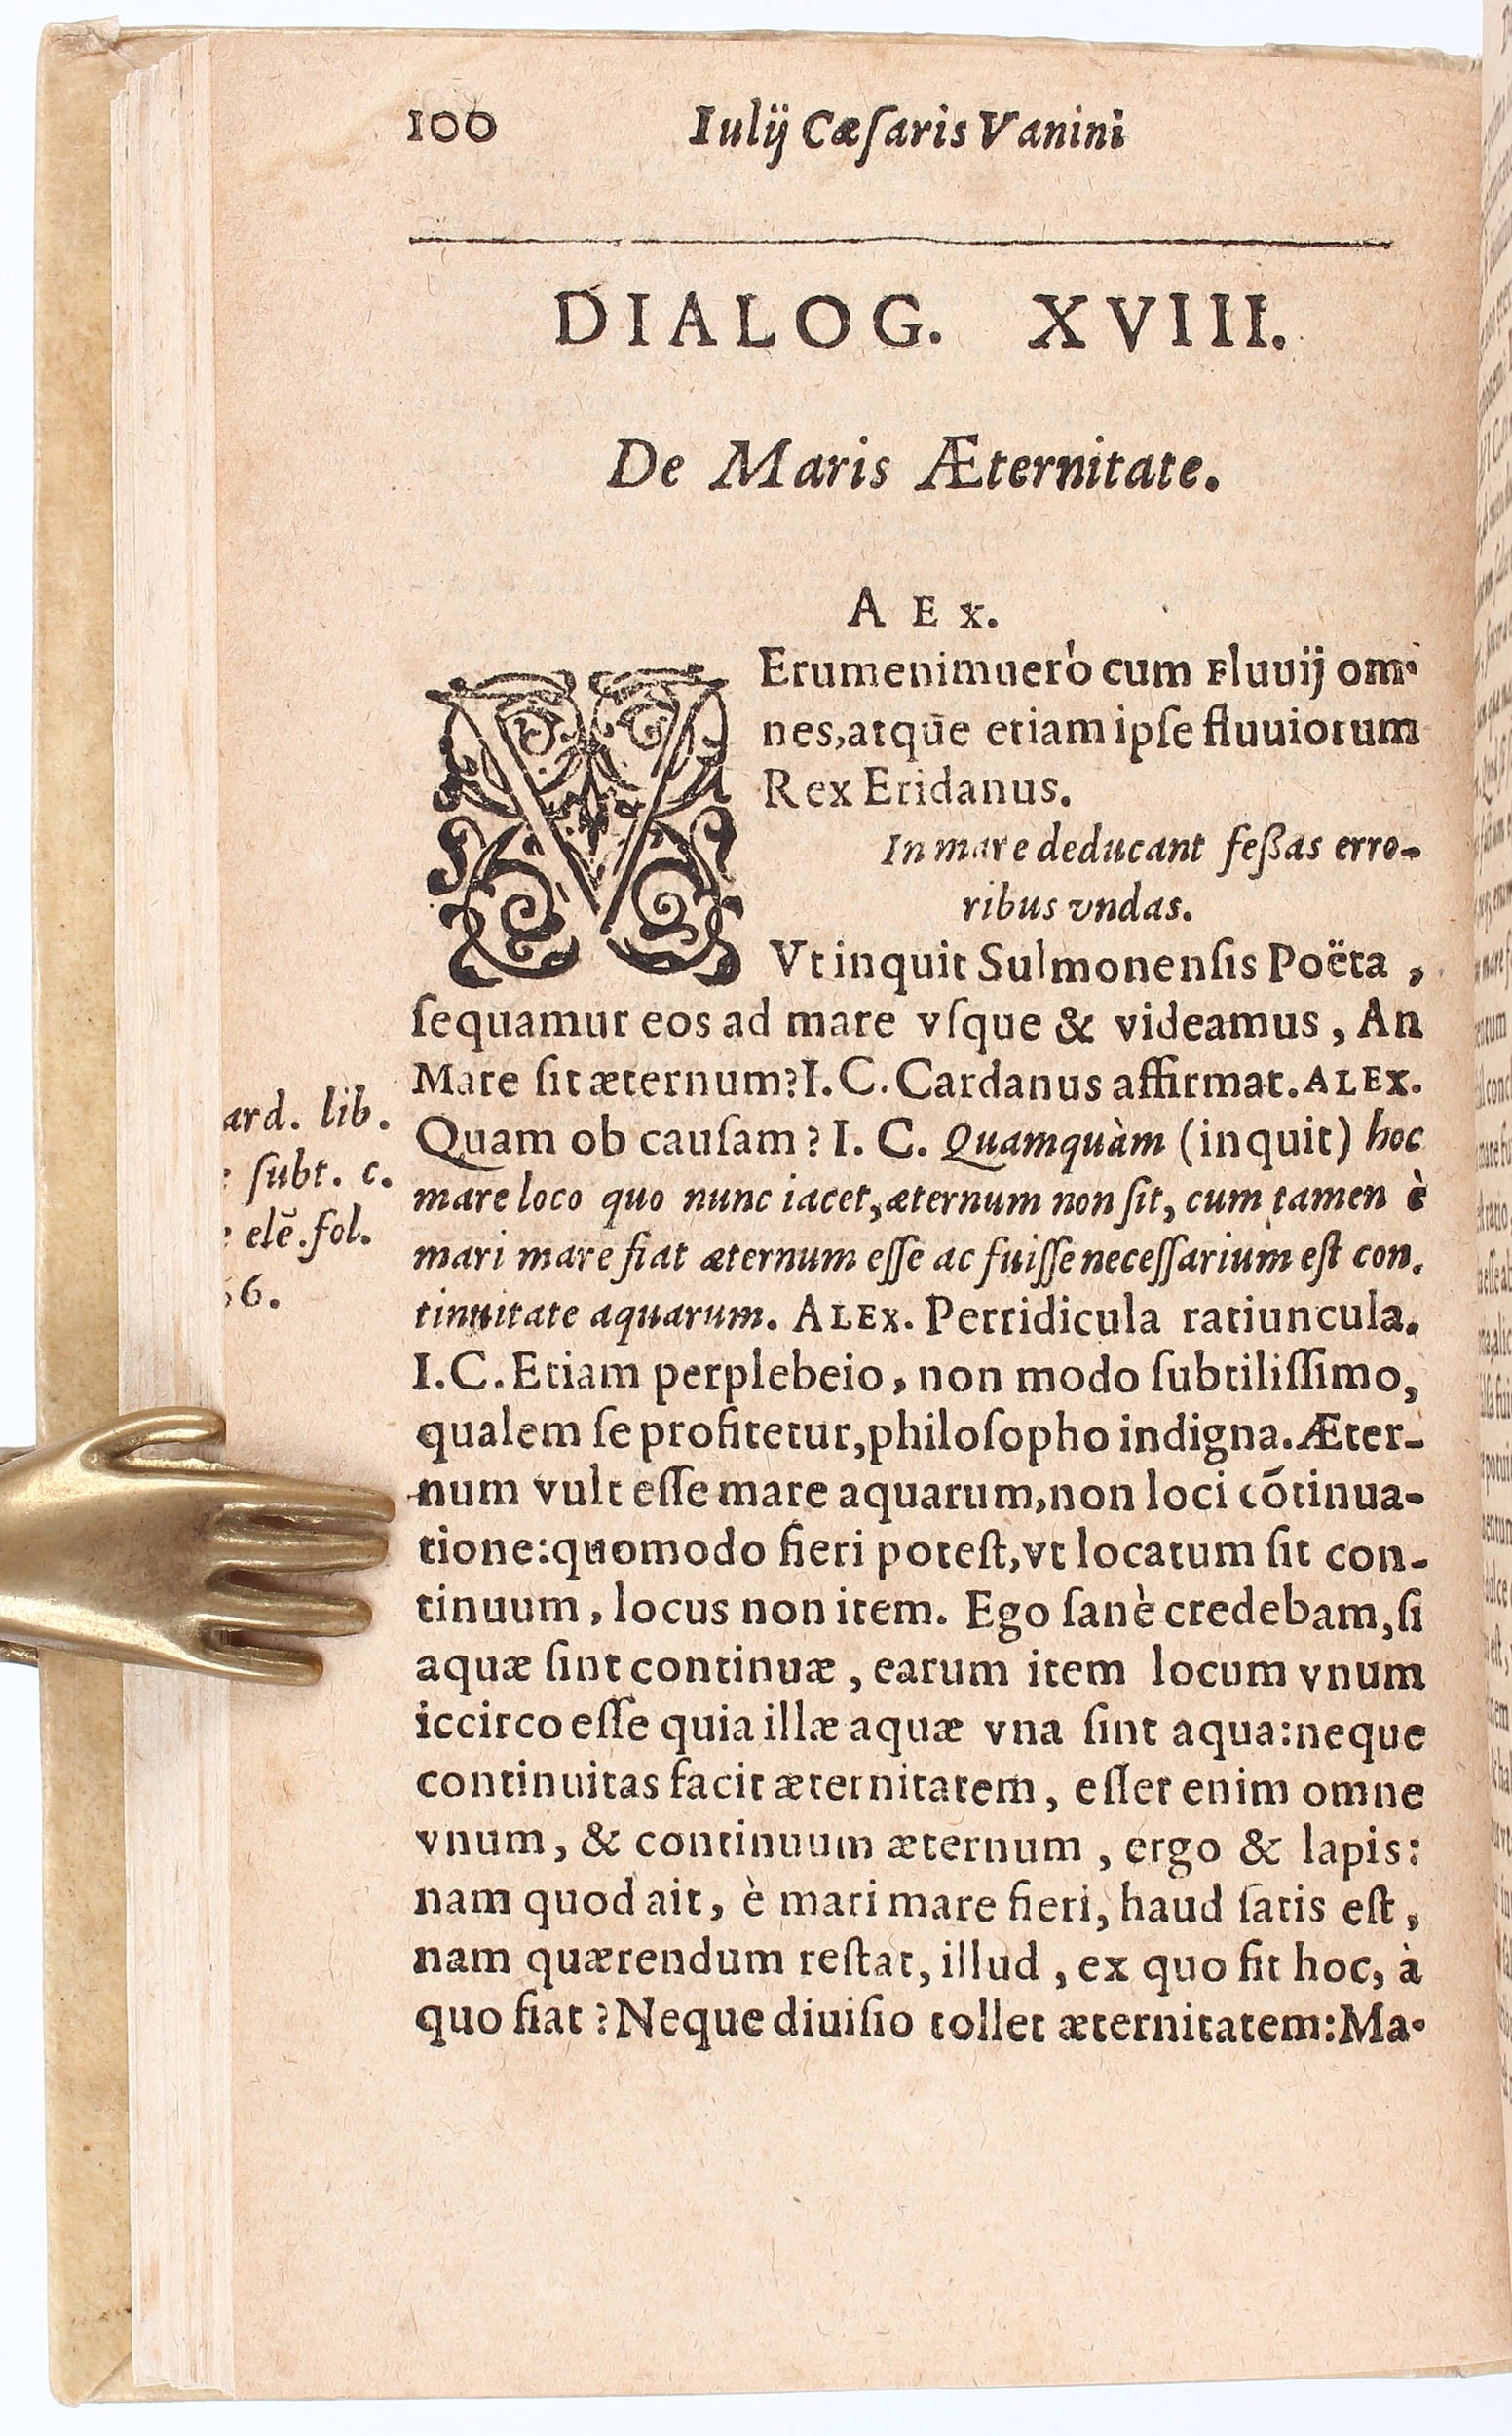 100 Iulij Cæſaris Vanini
DIALOG. XVIII.
De Maris Æternitate.
A E x.
VErumenimuerò cum Fluuij om-
nes, atqūe etiam ipſe fluuiorum
Rex Eridanus.
In mare deducant feßas erro-
ribus vndas.
Vt inquit Sulmonenſis Poëta,
ſequamur eos ad mare vſque & videamus, An
Mare ſit æternum? I. C. Cardanus affirmat. ALEX.
Quam ob cauſam? I. C. Quamquàm (inquit) hoc
mare loco quo nunc iacet, æternum non ſit, cum tamen è
mari mare fiat æternum eſſe ac fuiſſe neceſſarium eſt con.
tinuitate aquarum. ALEX. Perridicula ratiuncula.
I. C. Etiam perplebeio, non modo ſubtiliſſimo,
qualem ſe profitetur, philoſopho indigna. Æter-
num vult eſſe mare aquarum, non loci cõtinua-
tione: quomodo fieri poteſt, vt locatum ſit con-
tinuum, locus non item. Ego ſanè credebam, ſi
aquæ ſint continuæ, earum item locum vnum
iccirco eſſe quia illæ aquæ vna ſint aqua: neque
continuitas facit æternitatem, eſſet enim omne
vnum, & continuum æternum, ergo & lapis:
nam quod ait, è mari mare fieri, haud ſatis eſt,
nam quærendum reſtat, illud, ex quo fit hoc, à
quo fiat? Neque diuiſio tollet æternitatem: Ma-
ard. lib.
ſubt. c.
elē. fol.
6.